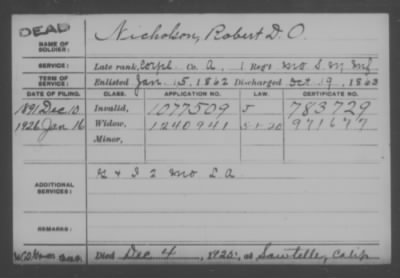 DEAD
NAME OF SOLDIER: Nicholson, Robert D. O.
SERVICE: Late rank, Corpl. Co. A, 1 Regt. Mo S. M. Inf.
TERM OF SERVICE: Enlisted Jan. 15, 1862 Discharged Oct 19, 1863
DATE OF FILING. CLASS. APPLICATION NO. LAW. CERTIFICATE NO.
1891 Dec 10 Invalid, 1077509 5 783729
1926 Jan 16 Widow, 1240941 5-1-20 971677
Minor,
ADDITIONAL SERVICES: & I 2 Mo S. A.
REMARKS:
Died Dec 4, 1925, at Sawtelle, Calif